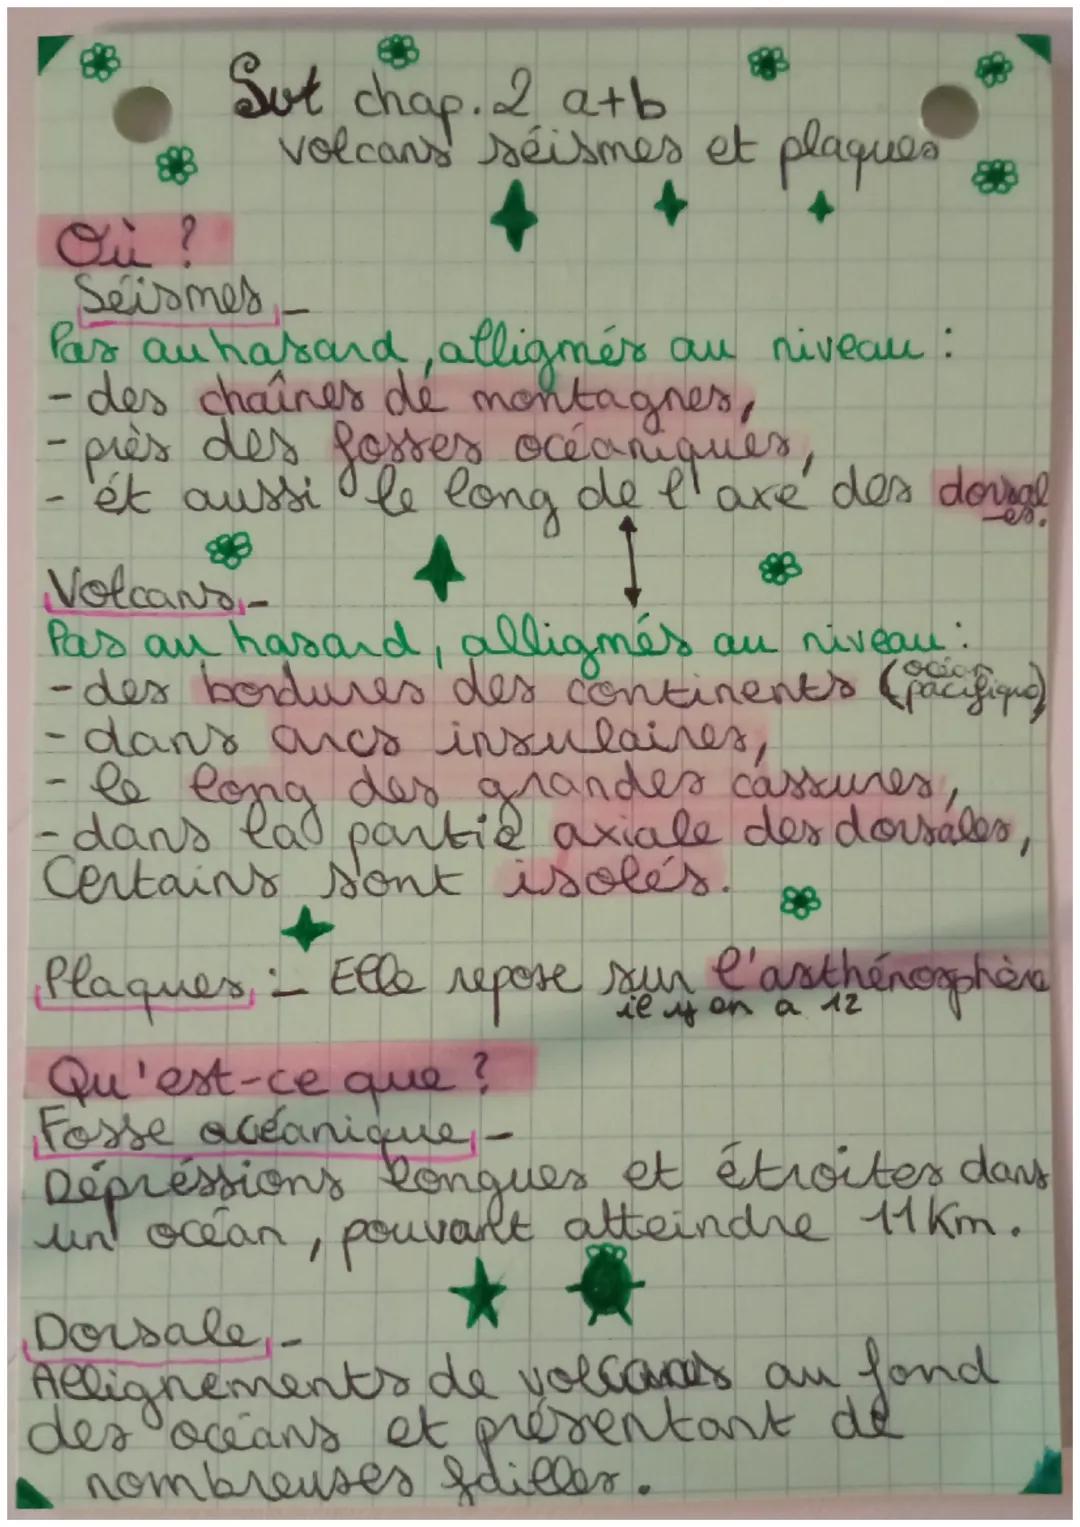 Svt chap. 2 a+b
volcans séismes et plaques
Où ?
Séismes -
Pas au hasard, alligmés au niveau :
- des chaînes de montagnes,
- près des fosses océaniques,
- et aussi le long de l'axe des dorsal
-es.
Volcans -
Pas au hasard, alligmés au niveau :
- des bordures des continents (océan pacifique)
- dans arcs insulaires,
- le long des grandes cassures,
- dans la partie axiale des dorsales,
Certains sont isolés.
Plaques : - Elle repose sur l'asthénosphère
il y en a 12
Qu'est-ce que ?
Fosse océanique -
Dépréssions longues et étroites dans
un océan, pouvant atteindre 11 Km.
Dorsale -
Allignements de volcans au fond
des océans et présentant de
nombreuses failles.